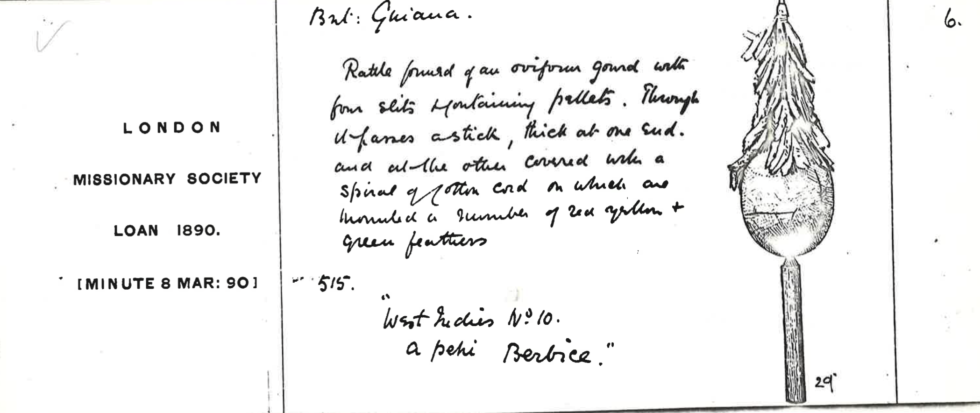 Brit: Guiana.
6.
Rattle formed of an oviform gourd with
four slits & containing pellets. Through
it passes a stick, thick at one end.
and at the other covered with a
spiral of cotton cord on which are
mounted a number of red yellow +
green feathers
LONDON
MISSIONARY SOCIETY
LOAN 1890.
[MINUTE 8 MAR: 90]
515.
"West Indies No 10.
a peki Berbice."
29"